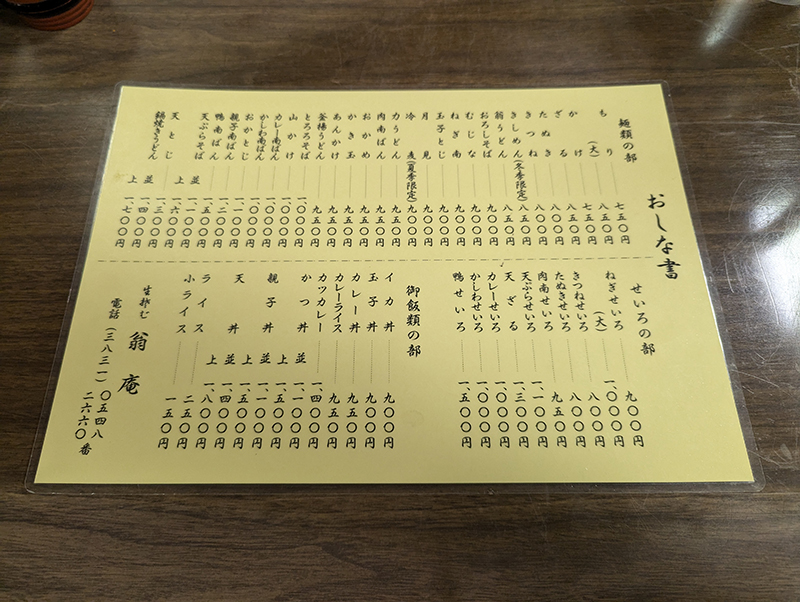 おしな書
麺類の部
もり 七五〇円
(大) 八五〇円
かけ 七五〇円
ざる 八〇〇円
たぬき 八〇〇円
きつね 八〇〇円
きしめん(冬季限定) 八五〇円
翁うどん 八五〇円
おろしそば 九〇〇円
むじな 九〇〇円
ねぎ南 九〇〇円
玉子とじ 九〇〇円
月見 九〇〇円
冷麦(夏季限定) 九〇〇円
力うどん 九五〇円
肉南ばん 九五〇円
おかめ 九五〇円
かき玉 九五〇円
あんかけ 九五〇円
釜揚うどん 九五〇円
とろろそば 一、〇〇〇円
山かけ 一、〇〇〇円
カレー南ばん 一、〇〇〇円
かしわ南ばん 一、〇〇〇円
おかとじ 一、一〇〇円
親子南ばん 一、二〇〇円
鴨南ばん 一、五〇〇円
天ぷらそば 並 一、一〇〇円
上 一、六〇〇円
天とじ 一、三〇〇円
鍋焼きうどん 並 一、四〇〇円
上 一、七〇〇円
せいろの部
ねぎせいろ 九〇〇円
(大) 一、〇〇〇円
きつねせいろ 八〇〇円
たぬきせいろ 八〇〇円
肉南せいろ 九五〇円
天ぷらせいろ 一、一〇〇円
天ざる 一、三〇〇円
カレーせいろ 一、〇〇〇円
かしわせいろ 一、〇〇〇円
鴨せいろ 一、五〇〇円
御飯類の部
イカ丼 九〇〇円
玉子丼 九〇〇円
カレー丼 九五〇円
カレーライス 九五〇円
カツカレー 一、四〇〇円
かつ丼 並 一、一〇〇円
上 一、五〇〇円
親子丼 並 一、一〇〇円
上 一、五〇〇円
天丼 並 一、四〇〇円
上 一、八〇〇円
ライス 二五〇円
小ライス 一五〇円
生粋む 翁庵
電話(三八三一)〇五四八
二六六〇番